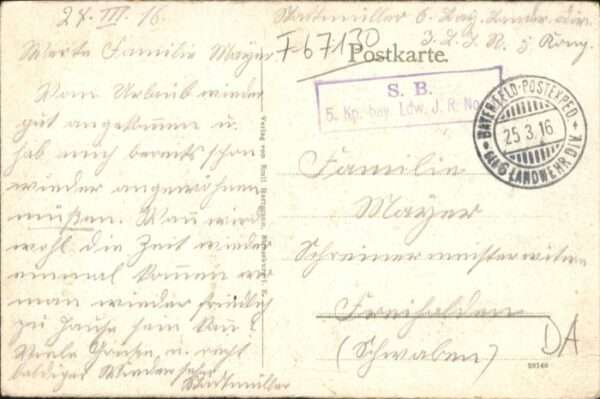 24. III. 16.
Werte Familie Mayer
Vom Urlaub wieder
gut angekommen u.
hab mich bereits schon
wieder angewöhnen
müßen. Wan wird
wohl die Zeit wieder
einmal kommen wo
man wieder friedlich
zu Hause sein kan?
Viele Grüße u. recht
baldiges Wiedersehen
Stattmüller
Verlag von Emil Hartmann,
Stattmüller 6. Bay. Landw. Div.
3. L. I. R. 5 Komp.
F 67130
Postkarte.
S. B.
5. Kp. bay. Ldw. J. R. No.
BAYER. FELD-POSTEXPED.
25.3.16
DER 6 LANDWEHR DIV.
Familie
Mayer
Schreinermeisterwitwe
Freihalden
(Schwaben)
DA